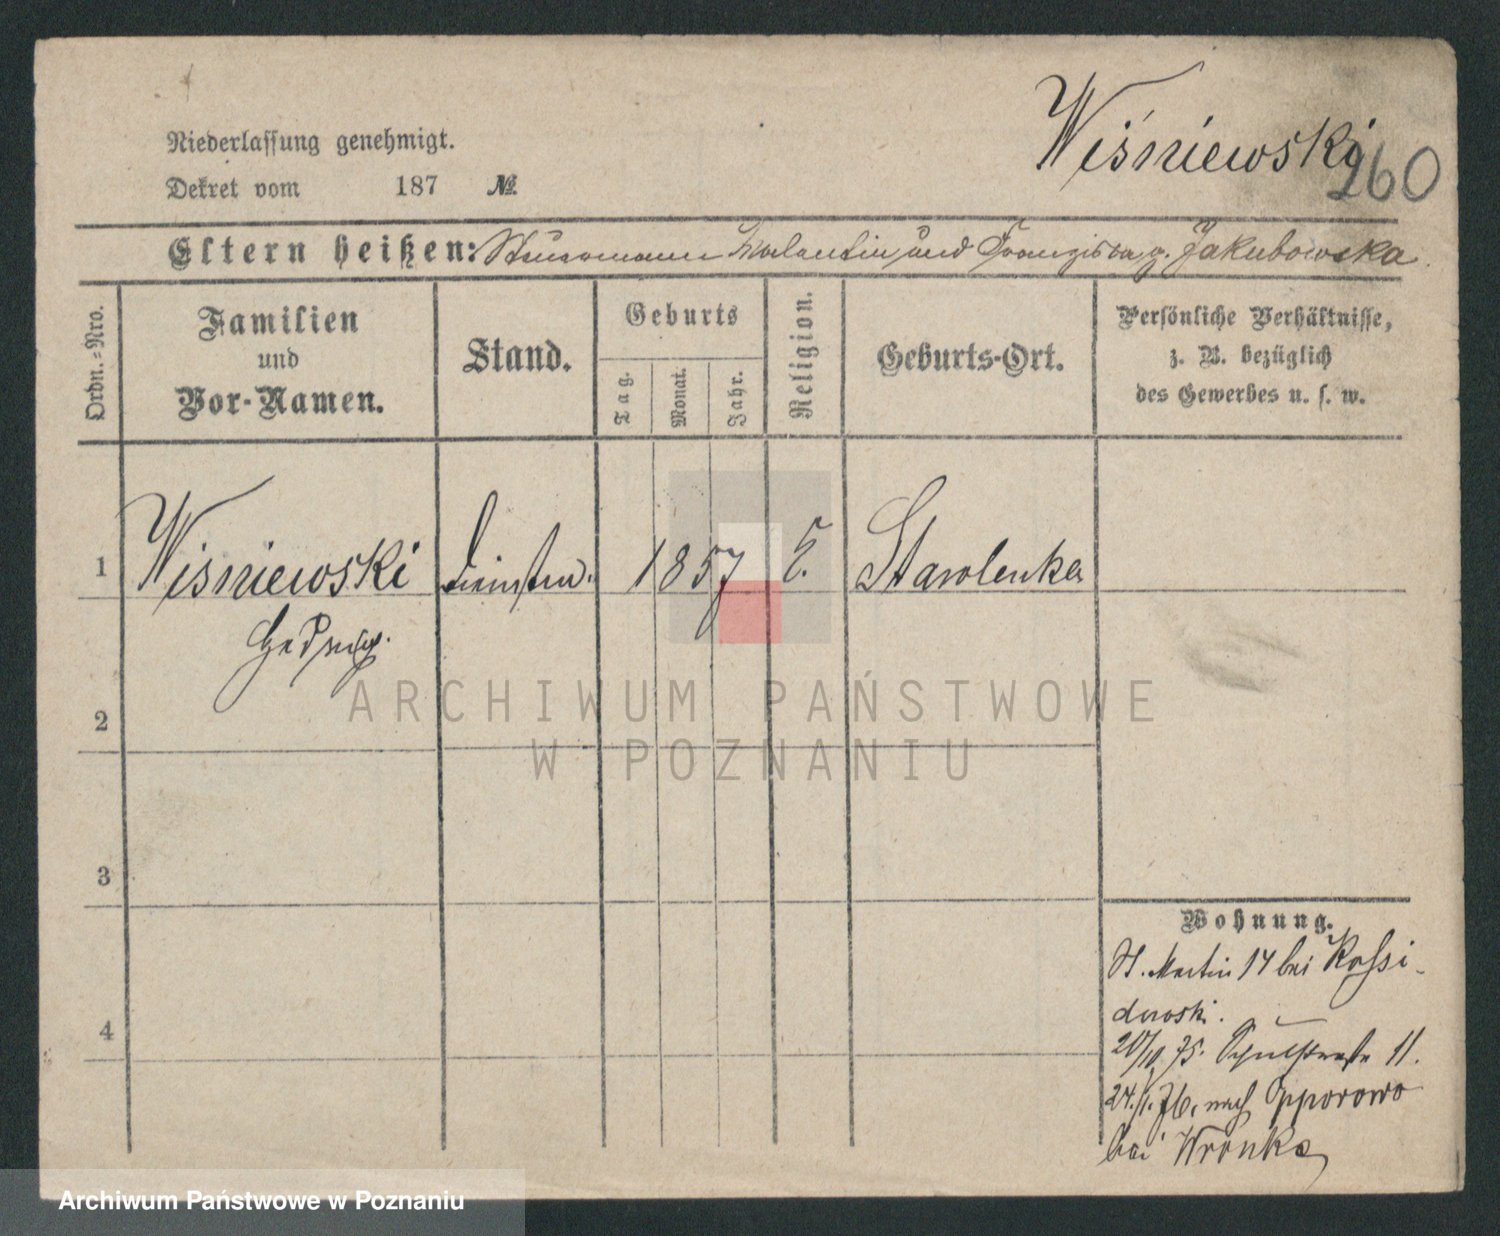 Wiśniewski
260
Niederlassung genehmigt.
Dekret vom 187 №
Eltern heißen: Valentin und Franziska g. Jakubowska.
Ordn.-Nro.
Familien
und
Vor-Namen.
Stand.
Geburts
Tag.
Monat.
Jahr.
Religion.
Geburts-Ort.
Persönliche Verhältnisse,
z. B. bezüglich
des Gewerbes u. s. w.
1 Wiśniewski 1857 Starolenka
Hedwig.
2
3
4
Wohnung.
St. Martin 14 bei
20/10. 75. 11.
24./1. 76. nach Opporowo
bei Wronke
ARCHIWUM PAŃSTWOWE
W POZNANIU
Archiwum Państwowe w Poznaniu